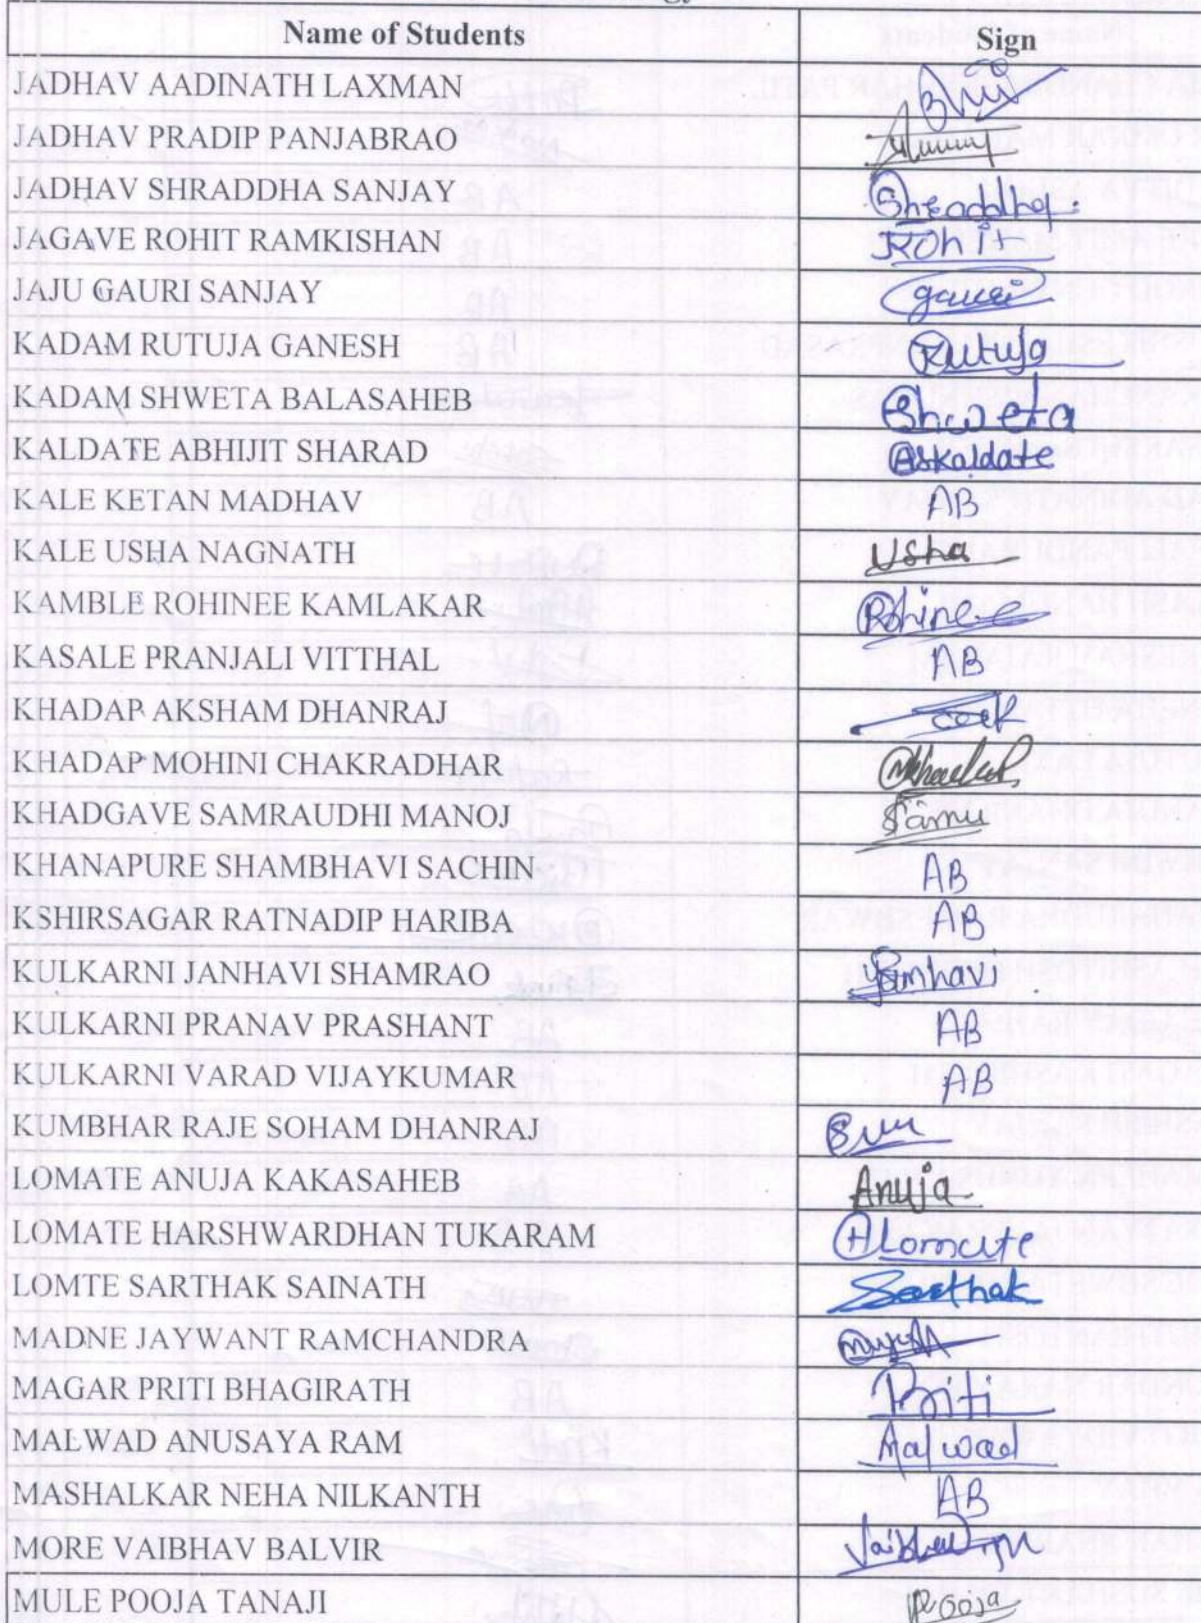 Name of Students Sign
JADHAV AADINATH LAXMAN
JADHAV PRADIP PANJABRAO
JADHAV SHRADDHA SANJAY Shraddha.
JAGAVE ROHIT RAMKISHAN Rohit
JAJU GAURI SANJAY gauri
KADAM RUTUJA GANESH Rutuja
KADAM SHWETA BALASAHEB Shweta
KALDATE ABHIJIT SHARAD ASkaldate
KALE KETAN MADHAV AB
KALE USHA NAGNATH Usha
KAMBLE ROHINEE KAMLAKAR Rohinee
KASALE PRANJALI VITTHAL AB
KHADAP AKSHAM DHANRAJ
KHADAP MOHINI CHAKRADHAR
KHADGAVE SAMRAUDHI MANOJ Samu
KHANAPURE SHAMBHAVI SACHIN AB
KSHIRSAGAR RATNADIP HARIBA AB
KULKARNI JANHAVI SHAMRAO Janhavi
KULKARNI PRANAV PRASHANT AB
KULKARNI VARAD VIJAYKUMAR AB
KUMBHAR RAJE SOHAM DHANRAJ
LOMATE ANUJA KAKASAHEB Anuja
LOMATE HARSHWARDHAN TUKARAM HLomate
LOMTE SARTHAK SAINATH Sarthak
MADNE JAYWANT RAMCHANDRA
MAGAR PRITI BHAGIRATH Priti
MALWAD ANUSAYA RAM Malwad
MASHALKAR NEHA NILKANTH AB
MORE VAIBHAV BALVIR
MULE POOJA TANAJI Pooja